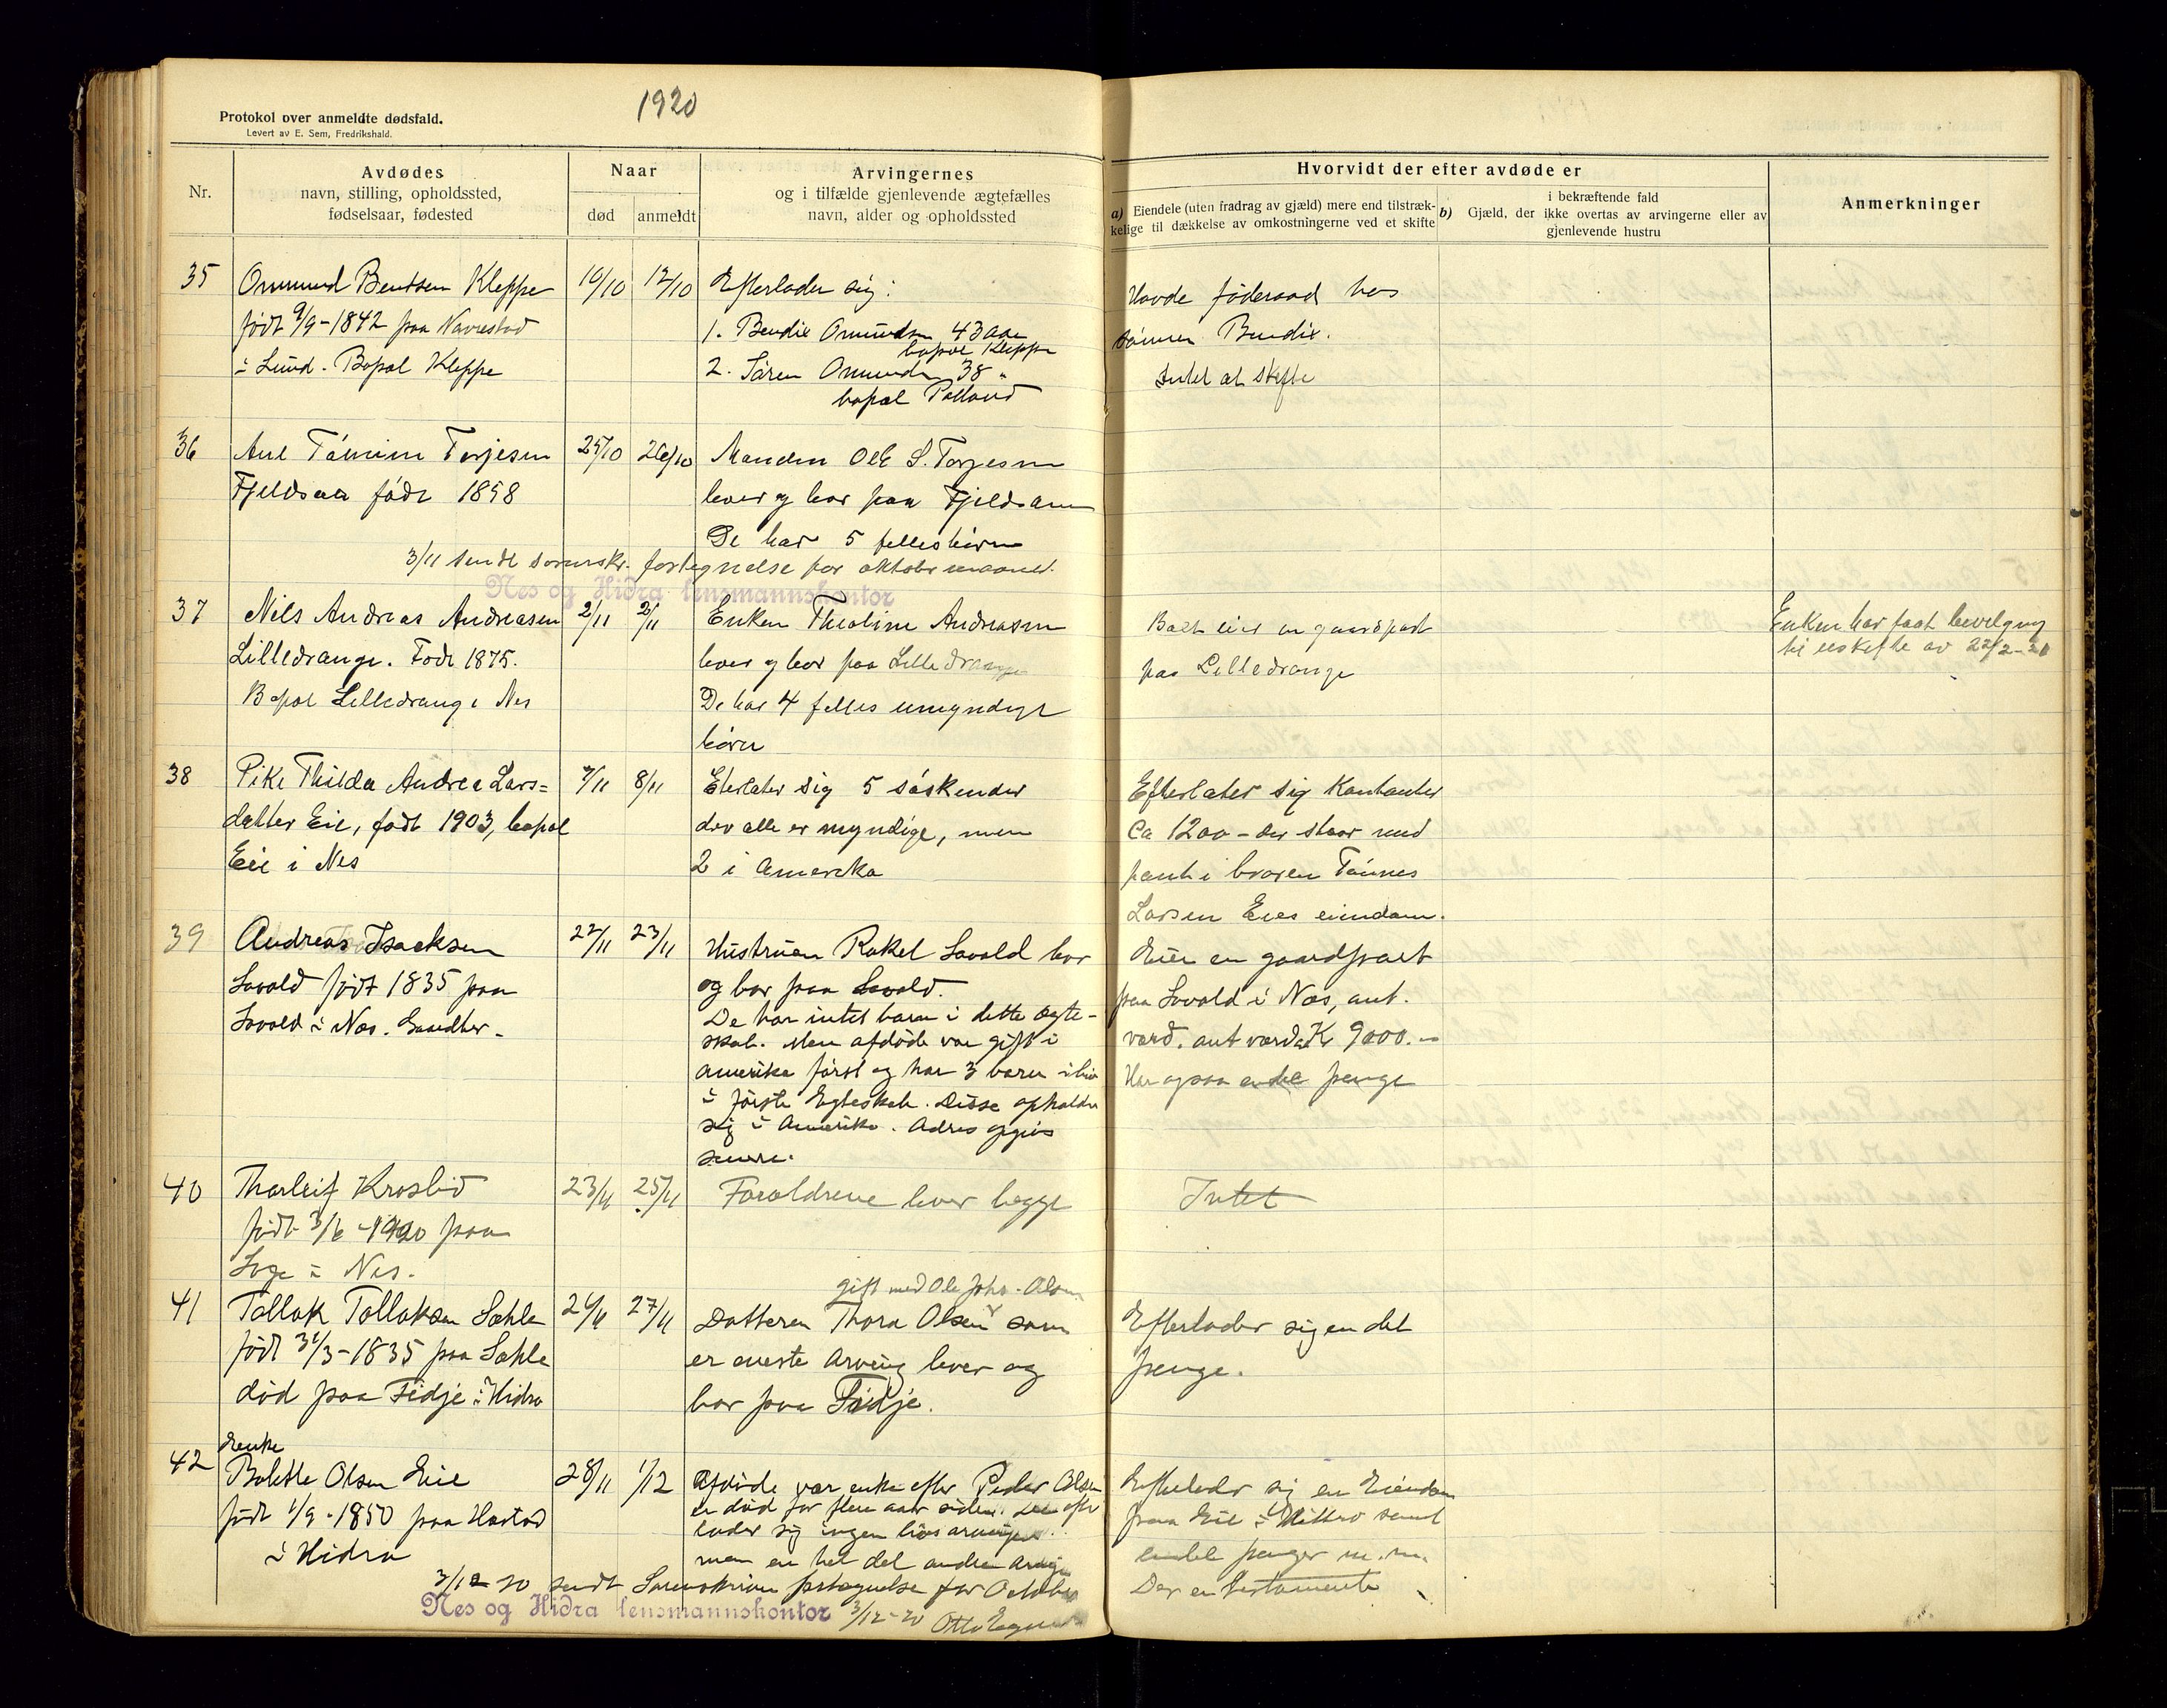 1920
Protokol over anmeldte dødsfald.
Levert av E. Sem, Fredrikshald.
Nr.
Avdødes
navn, stilling, opholdssted,
fødselsaar, fødested
Naar
død
anmeldt
Arvingernes
og i tilfælde gjenlevende ægtefælles
navn, alder og opholdssted
Hvorvidt der efter avdøde er
a) Eiendele (uten fradrag av gjæld) mere end tilstræk-
kelige til dækkelse av omkostningerne ved et skifte
i bekræftende fald
b) Gjæld, der ikke overtas av arvingerne eller av
gjenlevende hustru
Anmerkninger
35
Ommund Bentsen Kleppe
født 9/9-1842 paa Navrestad
i Lund. Bopæl Kleppe
10/10
12/10
Efterlader sig:
1. Bendix Omundsen 43 aar
bopæl Kleppe
2. Sören Omunds 38 "
bopæl
Havde föderaad hos
sönnen Bendix.
Intet at skifte
36
Ane Tomine Torjesen
Fjeldsaa född 1858
25/10
26/10
Manden Ole S. Torjesen
lever og bor paa Fjeldsaa
De har 5 fellesbörn
3/11 sendt sorenskr. fortegnelse for oktober maaned.
Nes og Hidra lensmannskontor
37
Nils Andreas Andreasen
Lilledrange. Född 1875.
Bopæl Lilledrange Nes
2/11
2/11
Enken Theoline Andreasen
lever og bor paa Lilledrange
De har 4 felles umyndige
börn
Boet eier en gaardpart
paa Lilledrange
Enken har faat bevilgning
til uskifte av 22/2-21
38
Pike Thilda Andrea Lars=
datter Eie, född 1903, bopæl
Eie i Nes
7/11
8/11
Eterlater sig 5 söskender
dev alle er myndige, men
2 i Amerika
Efterlater sig Kontanter
Ca 1200 - der staar med
pant i broren Tönnes
Larsen Eies eiendom.
39
Andreas Isacksen
Lovold född 1835 paa
Lovold i Nes. Gaardbr.
22/11
23/11
Hustruen Rakel Lovold lever
og bor paa Lovold.
De har intet barn i dette ægte-
skab. Men afdöde var gift i
Amerika först og har 3 barn i live
i förste Egteskab. Disse opholder
sig i Amerika. Adres opgives
senere.
Eier en gaardpart
paa Lovold i Nes, ant.
værd. ant værd Kr 9000.-
Har ogsaa endel penge
40
Thorleif Kroslid
född 3/6 -1920 paa
Loge i Nes.
23/11
25/11
Forældrene lever begge
Intet
41
Tollak Tollaksen Sæhle
född 31/3-1835 paa Sæhle
död paa Fidje i Hidra
26/11
27/11
gift med Ole Joh. Olsen
Datteren Thora Olsen som
er eneste Arving lever og
bor paa Fidje.
Efterlader sig en del
penge.
42
Enke
Bolette Olsen Eie
född 1/9-1850 paa Hastad
i Hidra
28/11
1/12
Afdöde var enke efter Peder Olsen
er död for flere aar siden. efter
lader sig ingen livsarvinger.
men en hel del andre arvinger
Efterlader sig en Eiendom
paa Eie i Hittero samt
endel penger m.m.
Der er testamente
3/12-20 sendt Sorenskriver fortegnelse for October
Nes og Hidra lensmannskontor 3/12-20